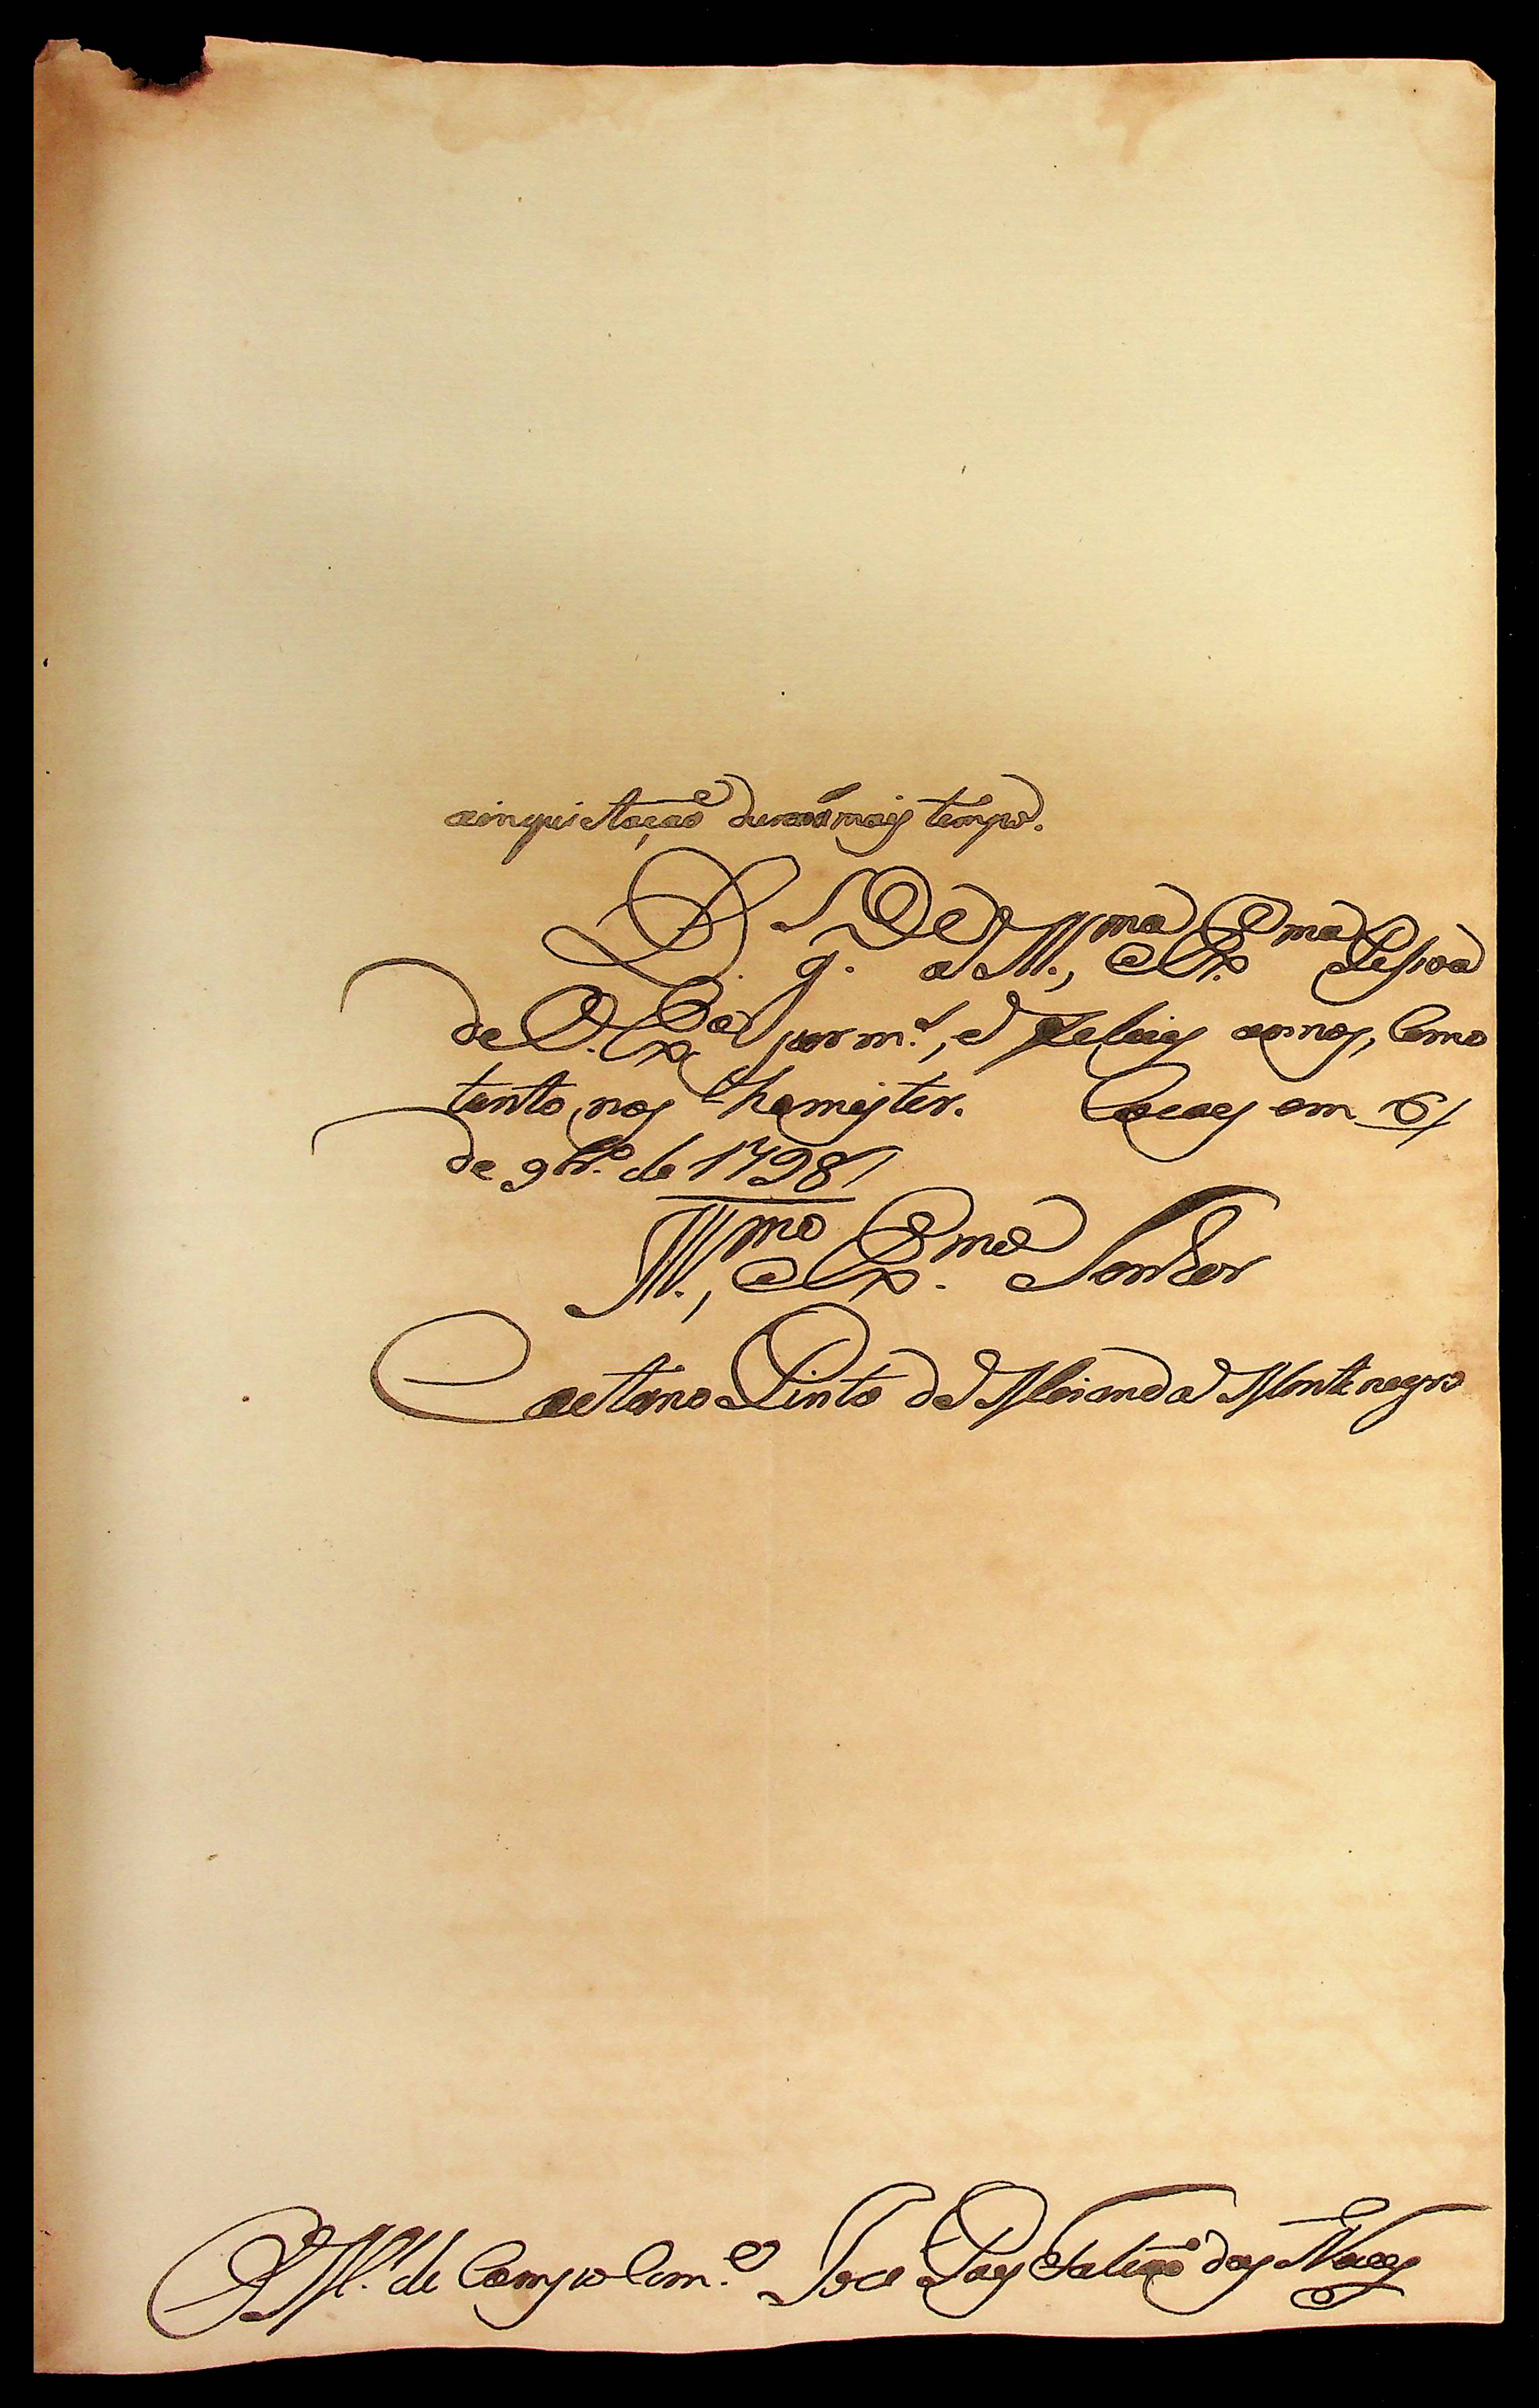 ainquietação durará mais tempo.
D.s g.de a Ill.ma, e Ex.ma Pessoa
de V. Ex.ca por m.s, e Felices annos, Como
tanto, nos he mister. Cocaes em 6/
de 9br.o de 1798/
Ill.mo, e Ex.mo Senhor
Caetano Pinto de Miranda Montenegro
O M.e de Campo Com.e Jose Paes Falcaõ das Neves